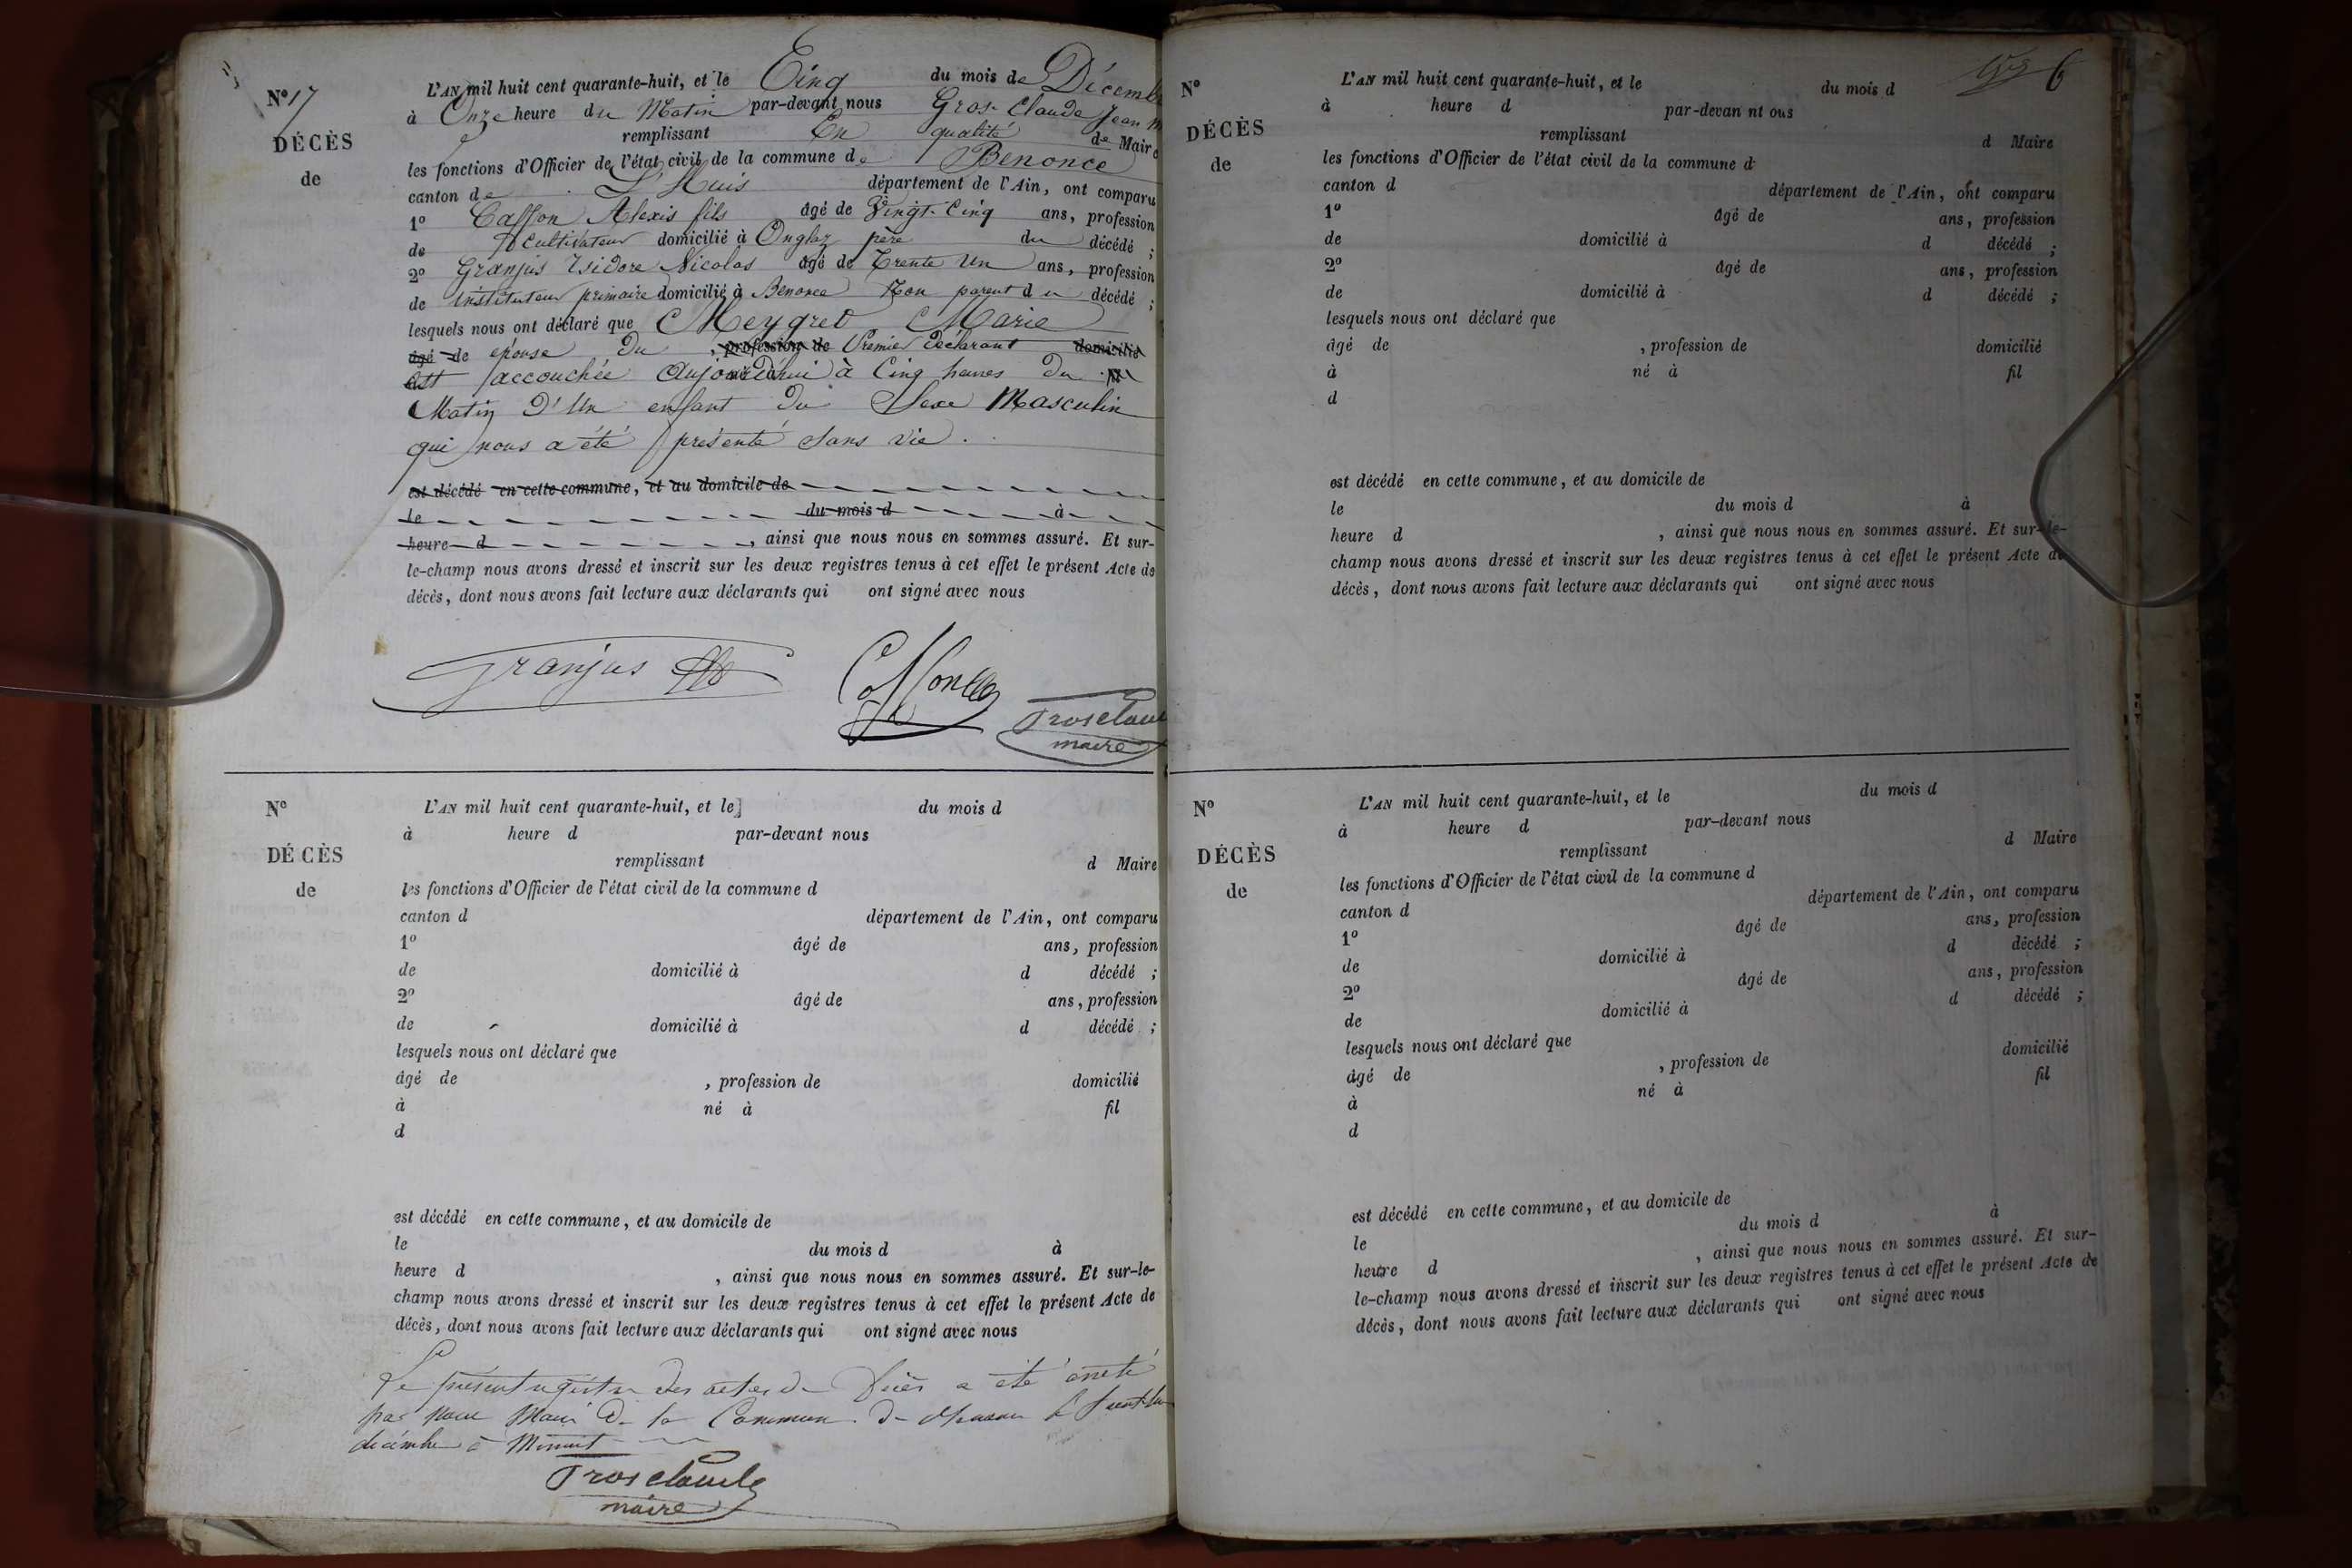 N° 17
DÉCÈS
de
L'AN mil huit cent quarante-huit, et le Cinq du mois de Décemb
à Onze heure du Matin par-devant nous Gros. Claude Jean M
remplissant En qualité de Maire
les fonctions d'Officier de l'état civil de la commune de Benonce
canton de L'Huis département de l'Ain, ont comparu
1° Caffon Alexis fils âgé de Vingt-Cinq ans, profession
de Cultivateur domicilié à Onglaz père du décédé ;
2° Granjus Isidore Nicolas âgé de Trente Un ans, profession
de instituteur primaire domicilié à Benonce Non parent du décédé ;
lesquels nous ont déclaré que Meygret Marie
âgé de épouse Du , profession de Premier déclarant domicilié
est accouchée Aujourd'hui à Cinq heures Du
Matin D'Un enfant du Sexe Masculin
qui nous a été présenté sans vie.
est décédé en cette commune, et au domicile de
le du mois d à
heure d , ainsi que nous nous en sommes assuré. Et sur-
le-champ nous avons dressé et inscrit sur les deux registres tenus à cet effet le présent Acte de
décès, dont nous avons fait lecture aux déclarants qui ont signé avec nous
Granjus
Grosclau
maire
N°
DÉCÈS
de
L'AN mil huit cent quarante-huit, et le du mois d
à heure d par-devant nous
remplissant d Maire
les fonctions d'Officier de l'état civil de la commune d
canton d département de l'Ain, ont comparu
1° âgé de ans, profession
de domicilié à d décédé ;
2° âgé de ans, profession
de domicilié à d décédé ;
lesquels nous ont déclaré que
âgé de , profession de domicilié
à né à fil
d
est décédé en cette commune, et au domicile de
le du mois d à
heure d , ainsi que nous nous en sommes assuré. Et sur-le-
champ nous avons dressé et inscrit sur les deux registres tenus à cet effet le présent Acte de
décès, dont nous avons fait lecture aux déclarants qui ont signé avec nous
Le présent registre des actes de Décès a été arreté
par nous Maire de la Commune de le
décembre à Minuit
Grosclaude
maire
6
N°
DÉCÈS
de
L'AN mil huit cent quarante-huit, et le du mois d
à heure d par-devan nt ous
remplissant d Maire
les fonctions d'Officier de l'état civil de la commune d
canton d département de l'Ain, ont comparu
1° âgé de ans, profession
de domicilié à d décédé ;
2° âgé de ans, profession
de domicilié à d décédé ;
lesquels nous ont déclaré que
âgé de , profession de domicilié
à né à fil
d
est décédé en cette commune, et au domicile de
le du mois d à
heure d , ainsi que nous nous en sommes assuré. Et sur-le-
champ nous avons dressé et inscrit sur les deux registres tenus à cet effet le présent Acte de
décès, dont nous avons fait lecture aux déclarants qui ont signé avec nous
N°
DÉCÈS
de
L'AN mil huit cent quarante-huit, et le du mois d
à heure d par-devant nous
remplissant d Maire
les fonctions d'Officier de l'état civil de la commune d
canton d département de l'Ain, ont comparu
1° âgé de ans, profession
de domicilié à d décédé ;
2° âgé de ans, profession
de domicilié à d décédé ;
lesquels nous ont déclaré que
âgé de , profession de domicilié
à né à fil
d
est décédé en cette commune, et au domicile de
le du mois d à
heure d , ainsi que nous nous en sommes assuré. Et sur-
le-champ nous avons dressé et inscrit sur les deux registres tenus à cet effet le présent Acte de
décès, dont nous avons fait lecture aux déclarants qui ont signé avec nous